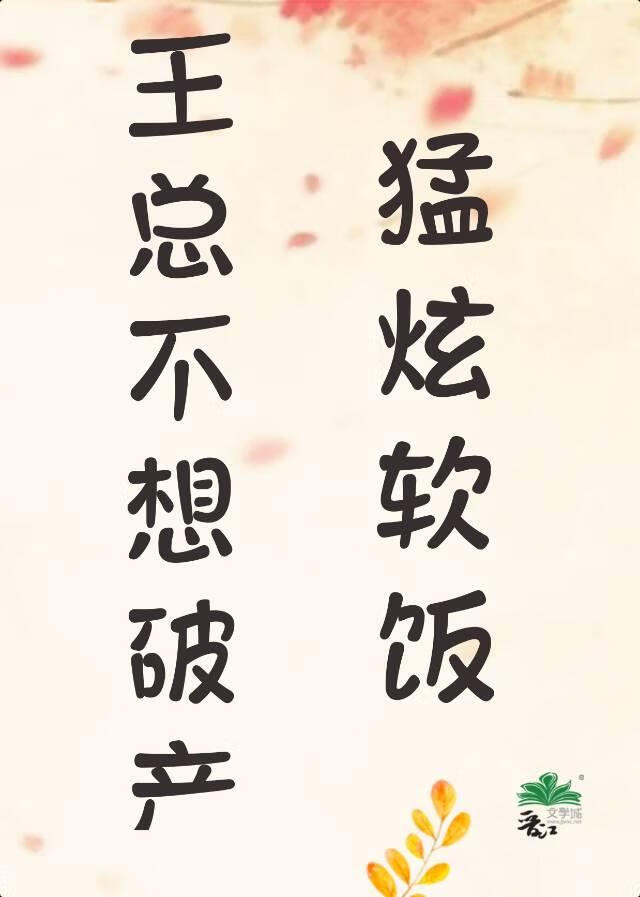 王总不想破产
猛炫软饭
晋江
文学城
www.jjwxc.net